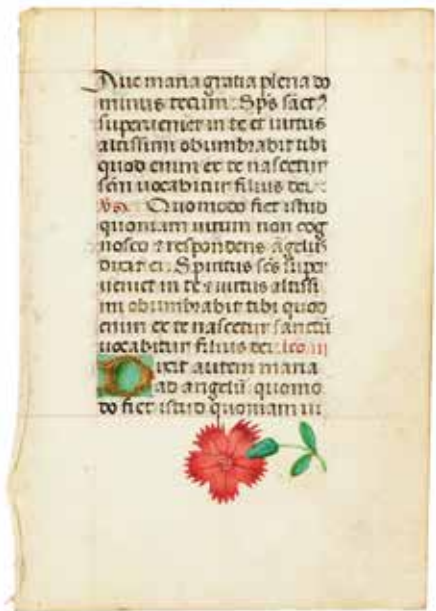 Aue maria gratia plena do
minus tecum. Sp̄s sāct9
superueniet in te et uirtus
altissimi obumbrabit tibi
quod enim ex te nascetur
sc̄m uocabitur filius dei.
Vs. Quomodo fiet istud
quoniam uirum non cog
nosco ⁊ respondens āgelus
dixit ei. Spiritus sc̄s super
ueniet in te ⁊ uirtus altissi
mi obumbrabit tibi quod
enim ex te nascetur sanctū
uocabitur filius dei. leo iii
Dixit autem maria
ad angelū quomo
do fiet istud quoniam ui